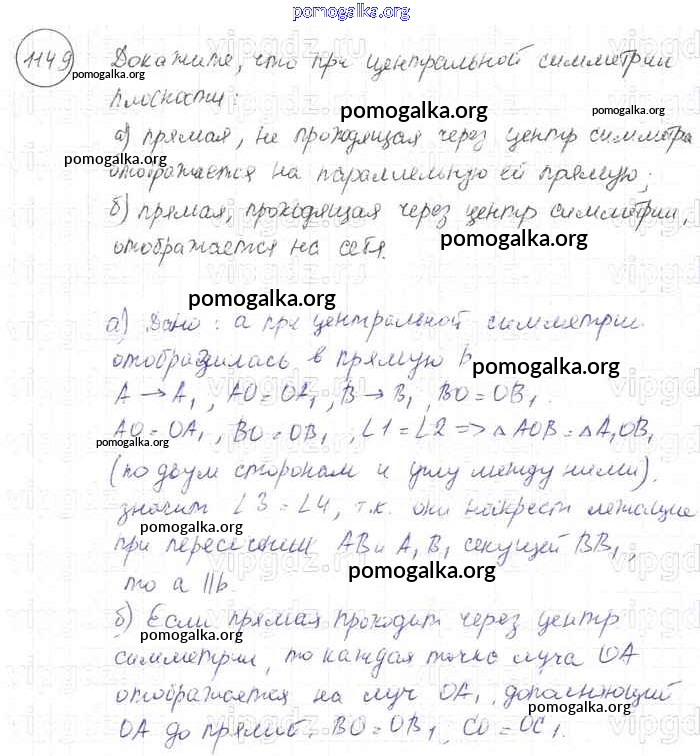 pomogalka.org
1149 Докажите, что при центральной симметрии
pomogalka.org
плоскости:
pomogalka.org
а) прямая, не проходящая через центр симметрии
pomogalka.org
отображается на параллельную ей прямую;
б) прямая, проходящая через центр симметрии,
pomogalka.org
отображается на себя.
pomogalka.org
а) Дано: a при центральной симметрии
отобразилась в прямую b
pomogalka.org
A → A₁, AO = OA₁, B → B₁, BO = OB₁.
AO = OA₁, BO = OB₁, ∠1 = ∠2 => △AOB = △A₁OB₁
pomogalka.org
(по двум сторонам и углу между ними),
значит ∠3 = ∠4, т.к. они накрест лежащие
pomogalka.org
при пересечении AB и A₁B₁ секущей BB₁,
pomogalka.org
то a || b.
б) Если прямая проходит через центр
pomogalka.org
симметрии, то каждая точка луча OA
отображается на луч OA₁, дополняющий
pomogalka.org
OA до прямой. BO = OB₁, CO = OC₁.